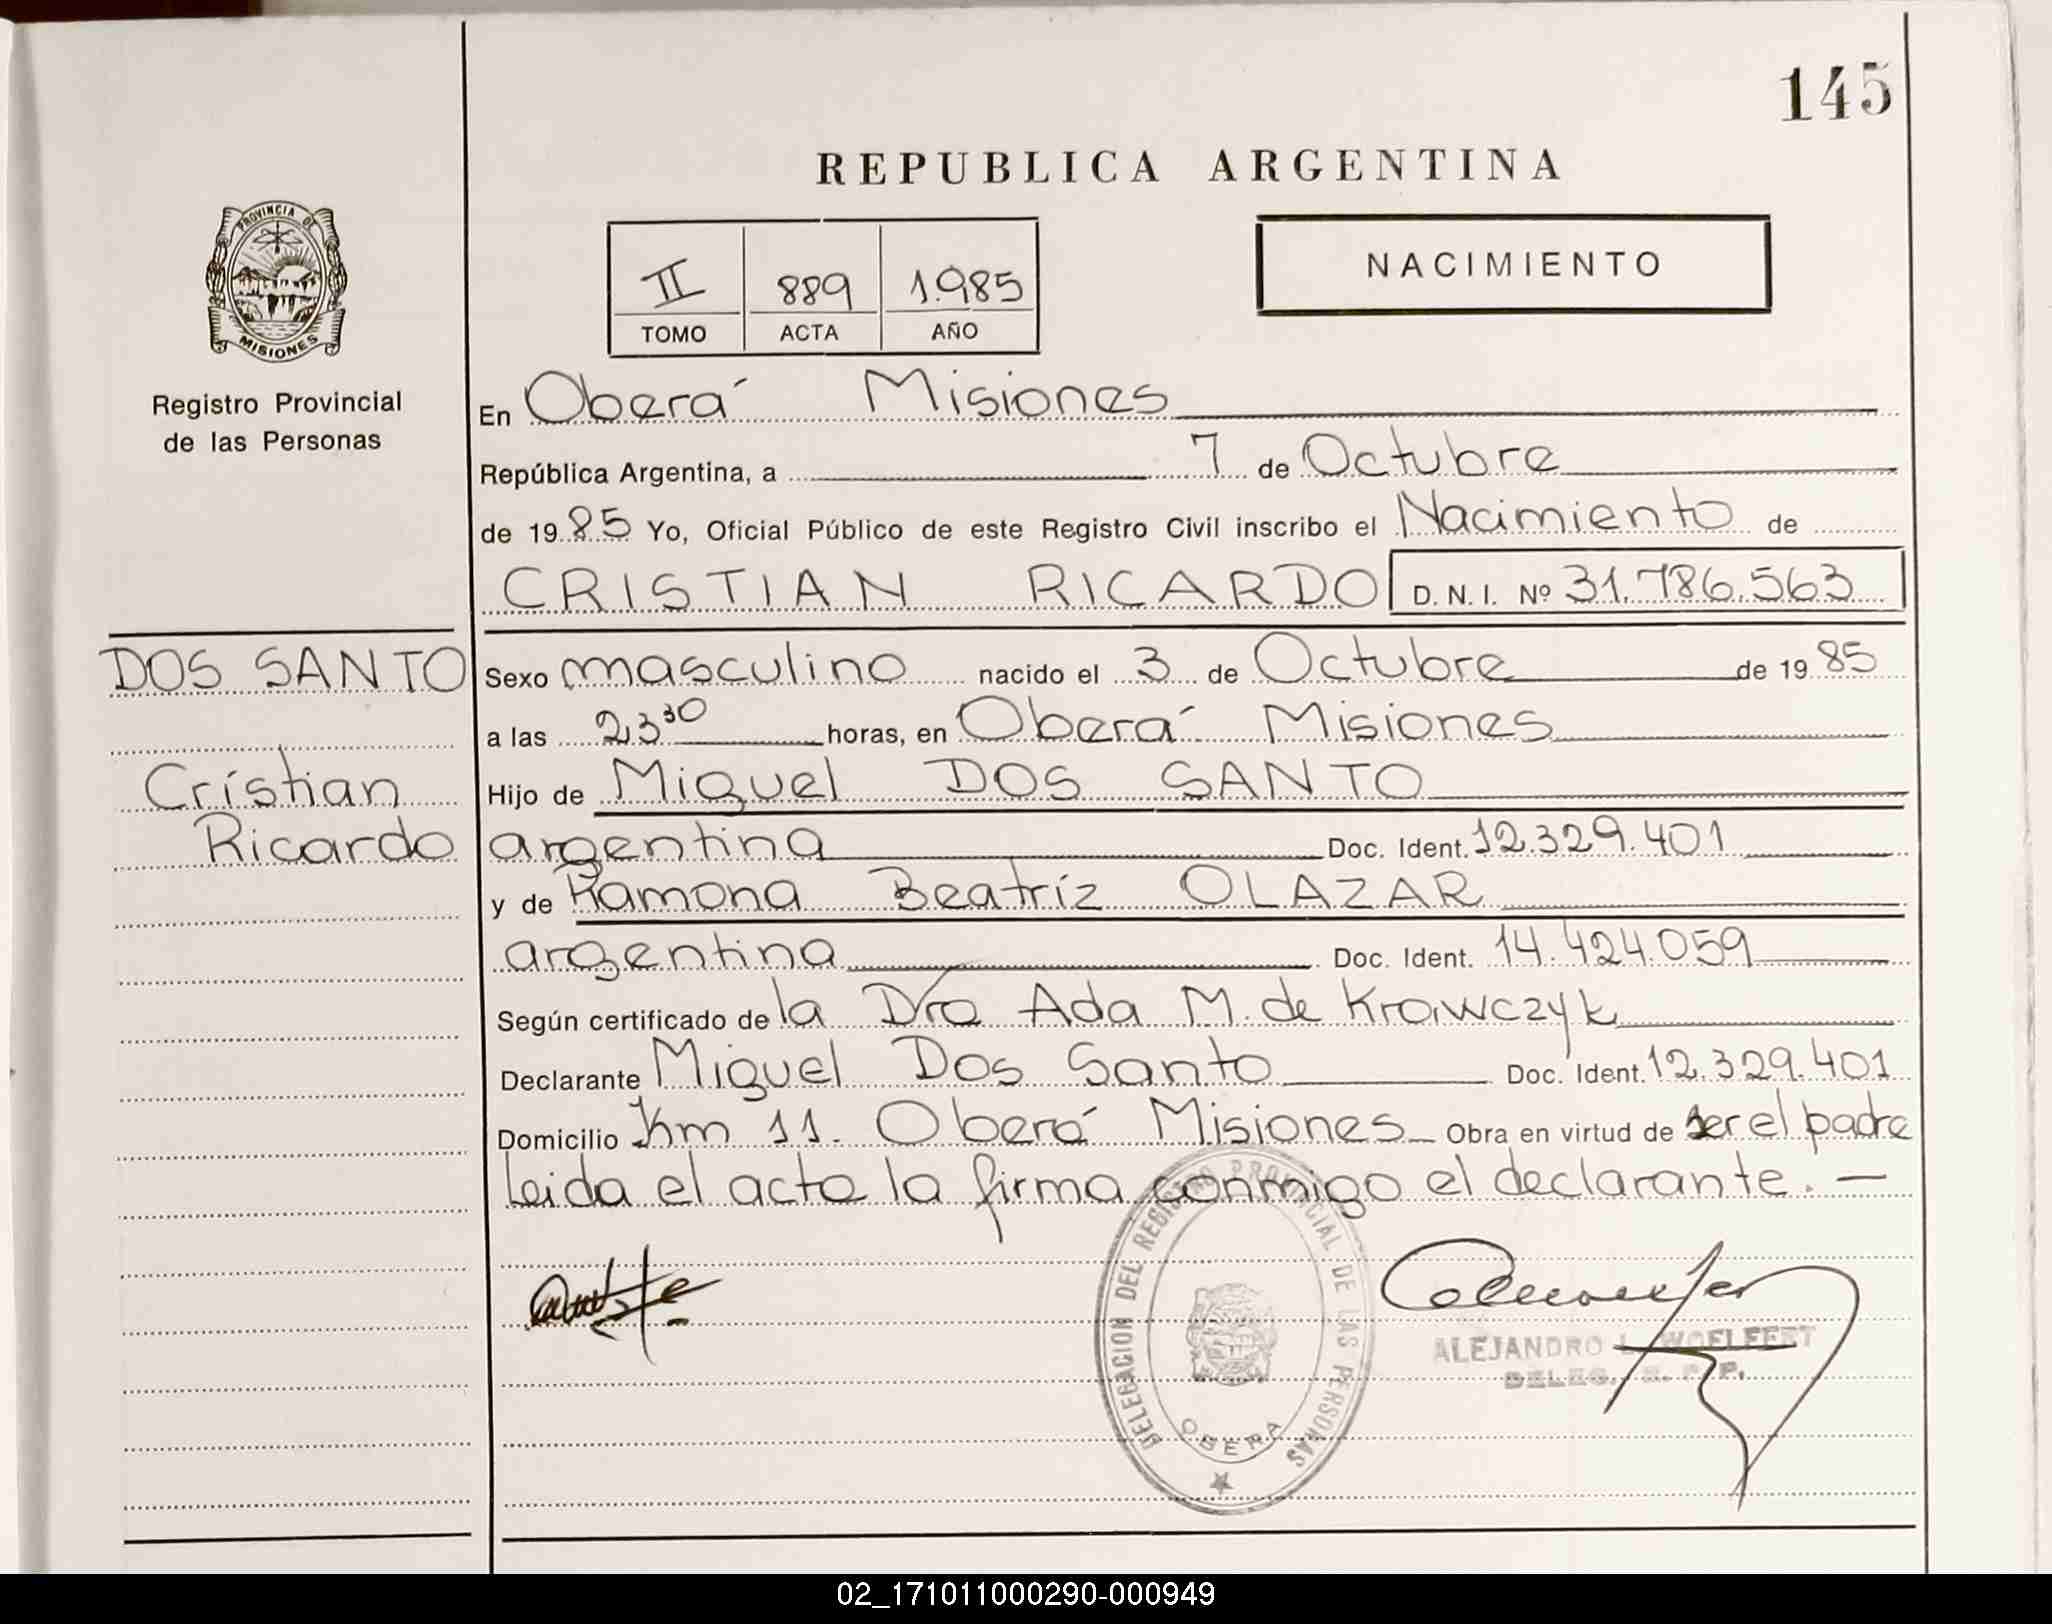 145
REPUBLICA ARGENTINA
PROVINCIA DE
MISIONES
Registro Provincial
de las Personas
II 889 1.985
TOMO ACTA AÑO
NACIMIENTO
En Oberá Misiones
República Argentina, a 7 de Octubre
de 1985 Yo, Oficial Público de este Registro Civil inscribo el Nacimiento de
CRISTIAN RICARDO D. N. I. Nº 31.786.563
DOS SANTO
Cristian
Ricardo
Sexo masculino nacido el 3 de Octubre de 1985
a las 23 30 horas, en Oberá Misiones
Hijo de Miguel DOS SANTO
argentina Doc. Ident. 12.329.401
y de Ramona Beatríz OLAZAR
argentina Doc. Ident. 14.424.059
Según certificado de la Dra Ada M. de Krawczyk
Declarante Miguel Dos Santo Doc. Ident. 12.329.401
Domicilio Km 11. Oberá Misiones Obra en virtud de ser el padre
leida el acta la firma conmigo el declarante. —
DELEGACION DEL REGISTRO PROVINCIAL DE LAS PERSONAS
OBERA
ALEJANDRO L. WOELFERT
DELEG. R. P. P.
02_171011000290-000949